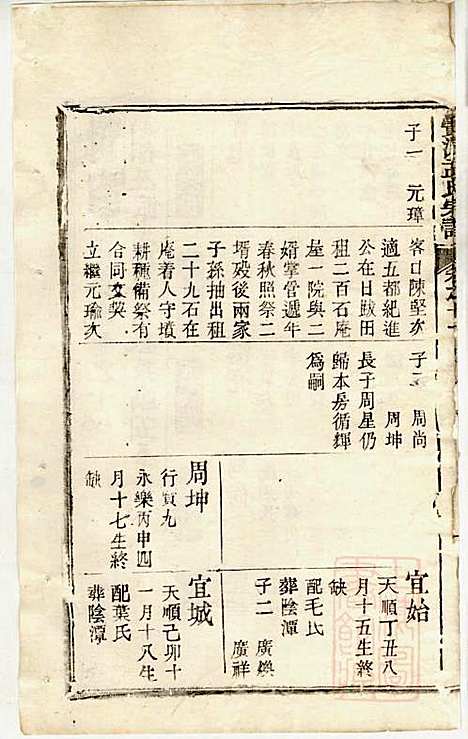 子一　元璋
客口陳堅次
適五都紀進
公在日敭田
租二百石庵
屋一院與二
婿掌管遞年
春秋照祭二
壻歿後兩家
子孫抽出租
二十九石在
庵着人守墳
耕種備祭有
合同文契
立繼元瑜次
子二　周尚
周坤
長子周星仍
歸本房循輝
爲嗣
周坤
行寅九
永樂丙申四
月十七生終
缺
宜始
天順丁丑八
月十五生終
缺
配毛氏
葬陰潭
子二　廣鑅
廣祥
宜城
天順己卯十
一月十八生
配葉氏
葬陰潭